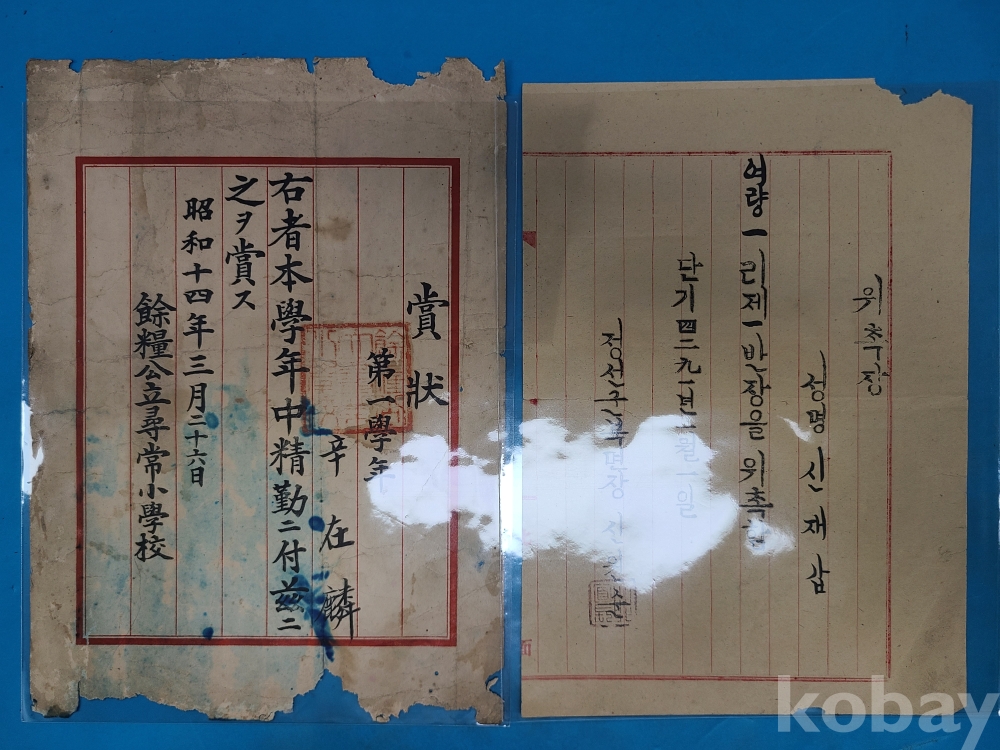 賞狀
第一學年
辛在麟
右者本學年中精勤ニ付茲ニ
之ヲ賞ス
昭和十四年三月二十六日
餘糧公立尋常小學校
위촉장
성명 신재삼
여량一리제一반장을 위촉함
단기四二九一년 월一일
정선군북면장
kobay